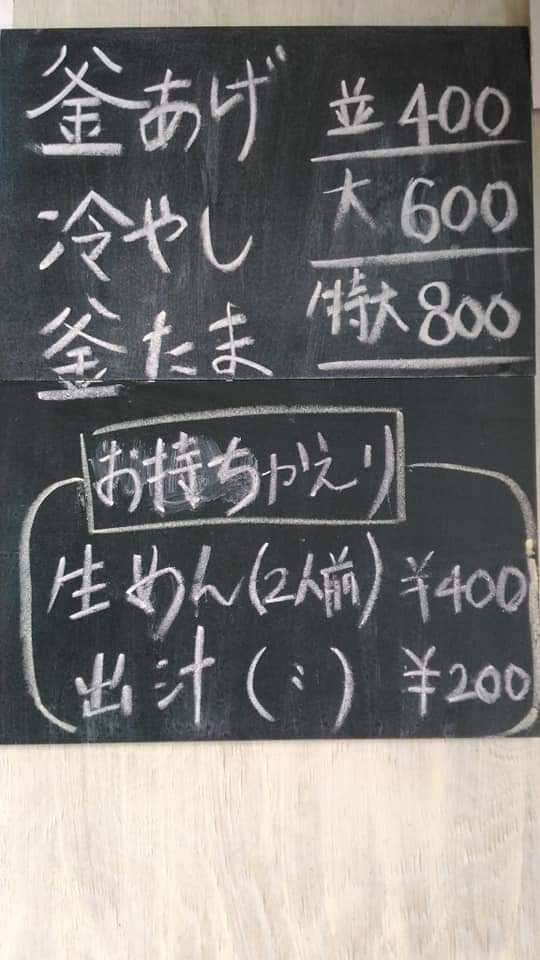 釜あげ 並 400
冷やし 大 600
釜たま 特大 800
お持ちかえり
生めん(2人前) ¥400
出汁(〃) ¥200